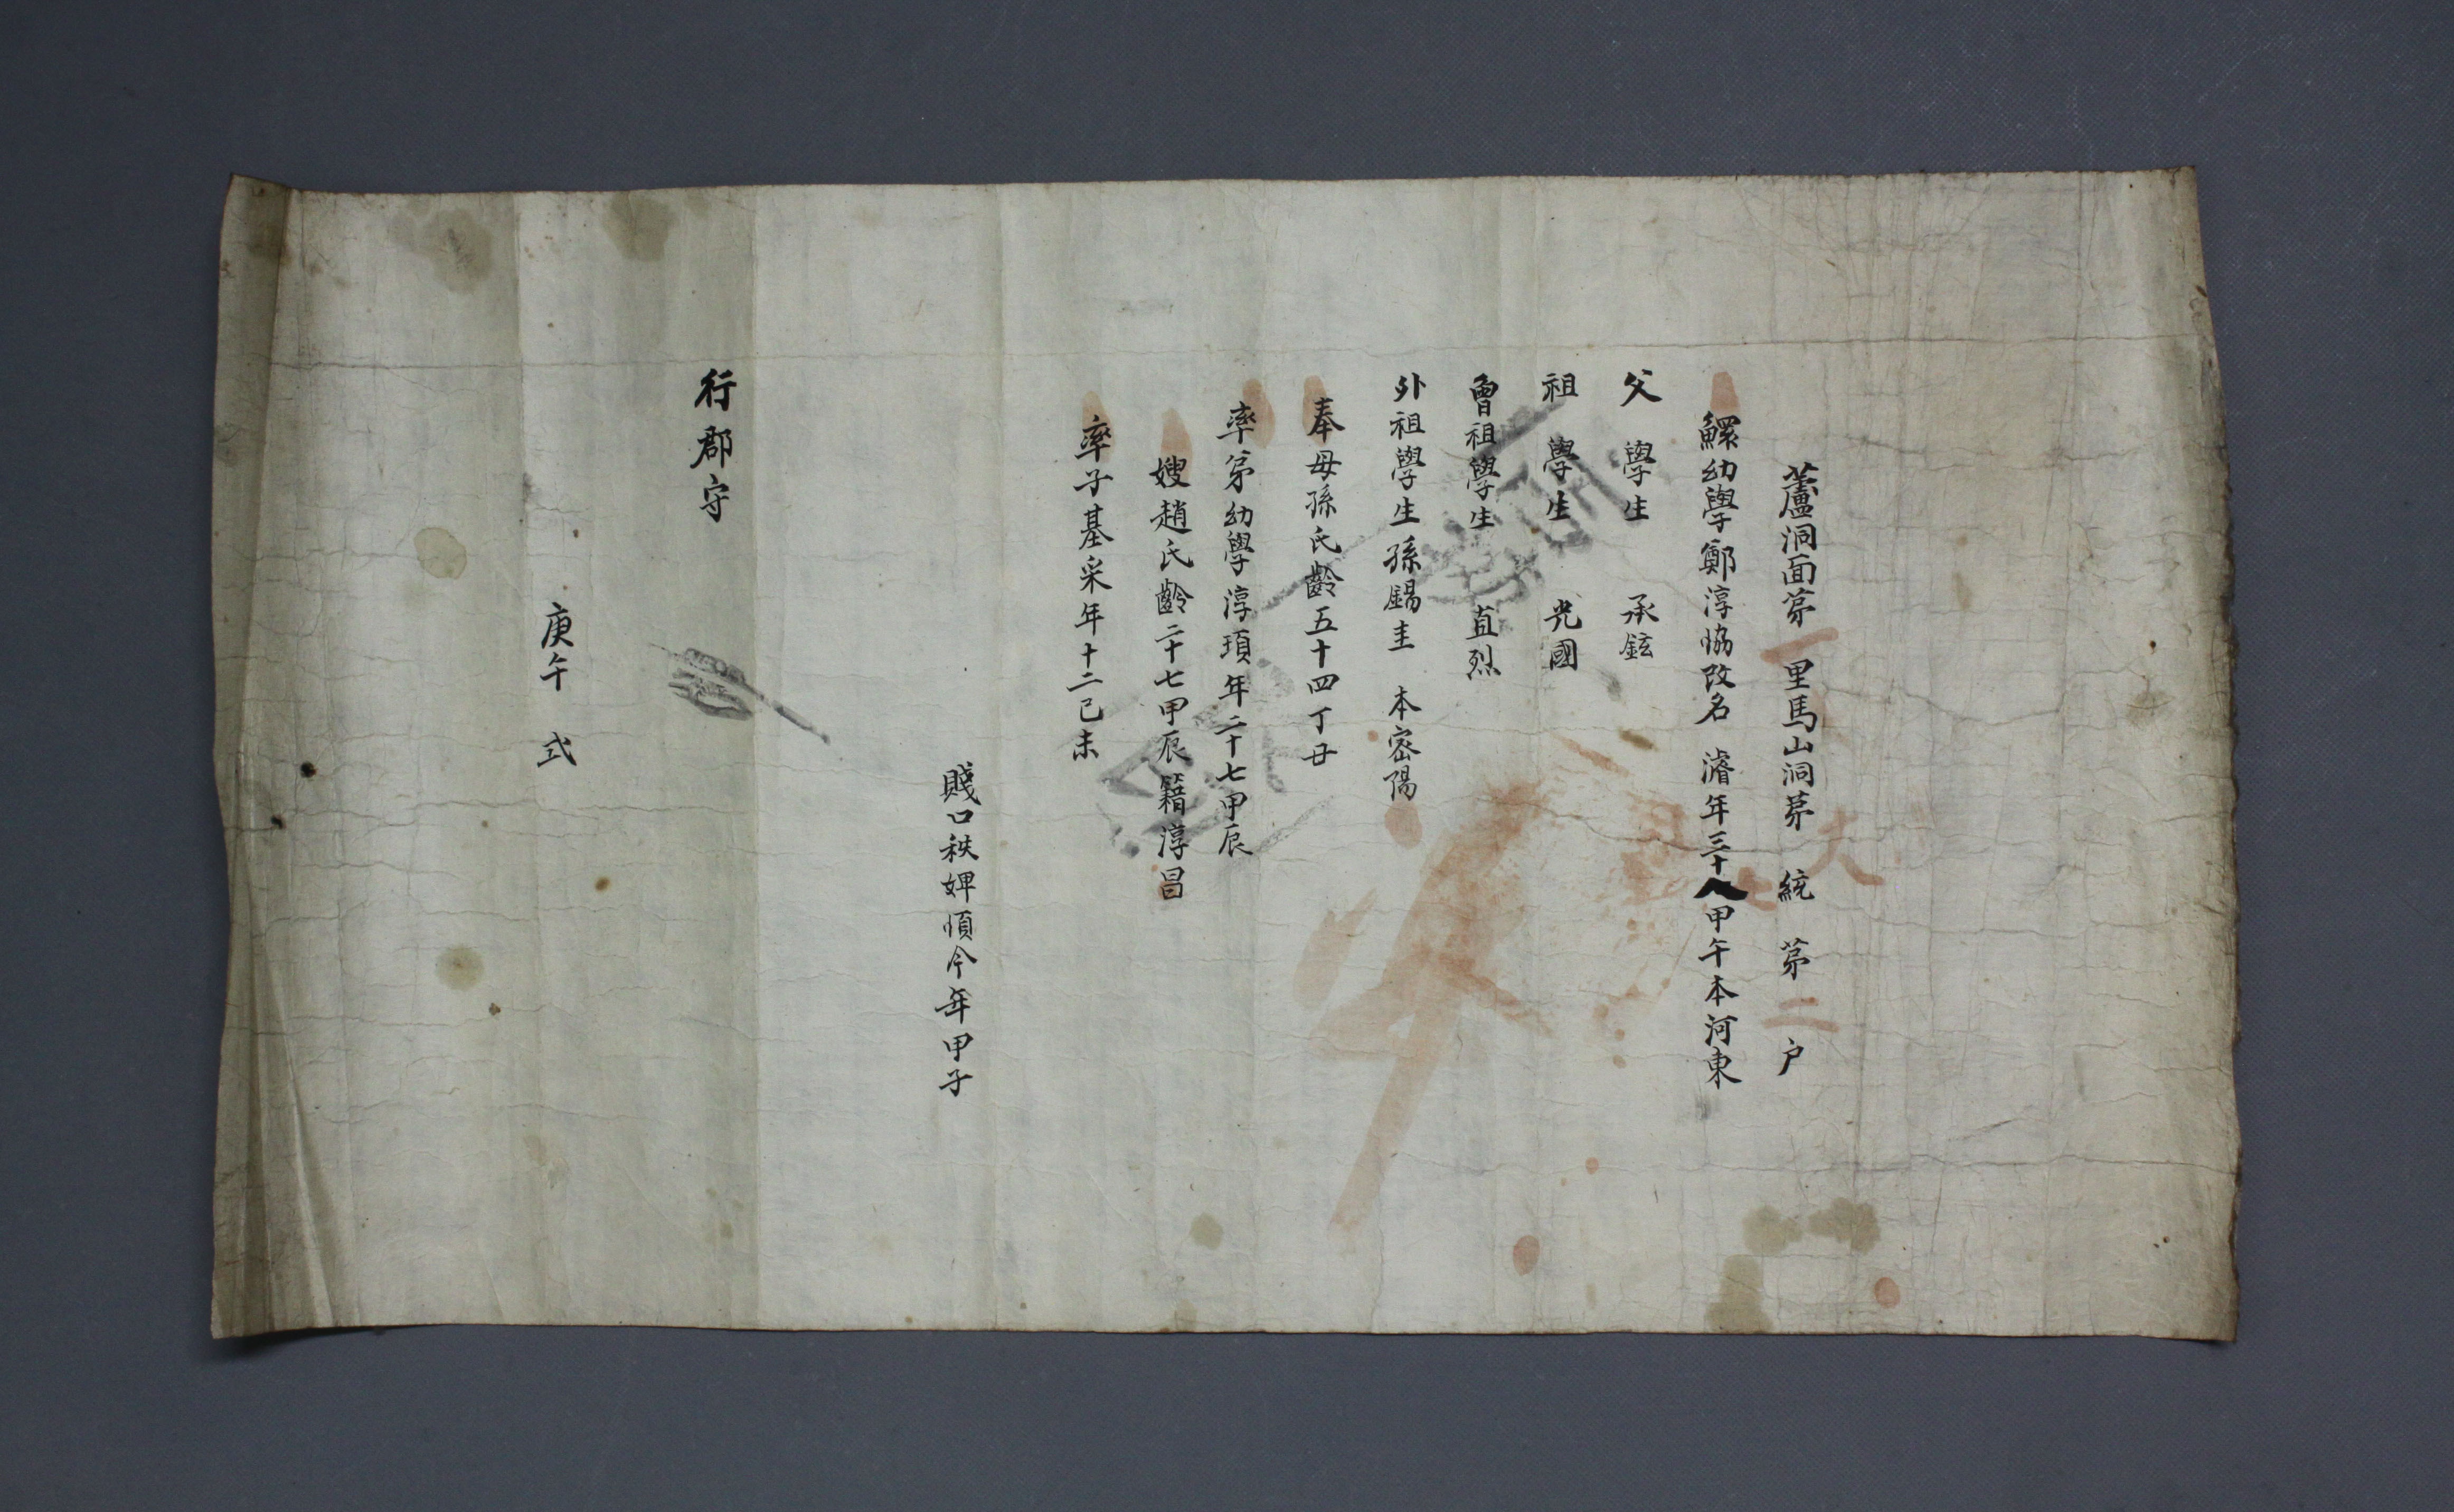 蘆洞面第一里馬山洞第 統 第二戶
鰥幼學鄭淳協改名 濬年三十八甲午本河東
父 學生 承鉉
祖 學生 光國
曾祖學生 直烈
外祖學生孫錫圭 本密陽
奉母孫氏齡五十四丁丑
率弟幼學淳頊年二十七甲辰
嫂趙氏齡二十七甲辰籍淳昌
率子基采年十二己未
賤口秩婢順今年甲子
行郡守
庚午 式